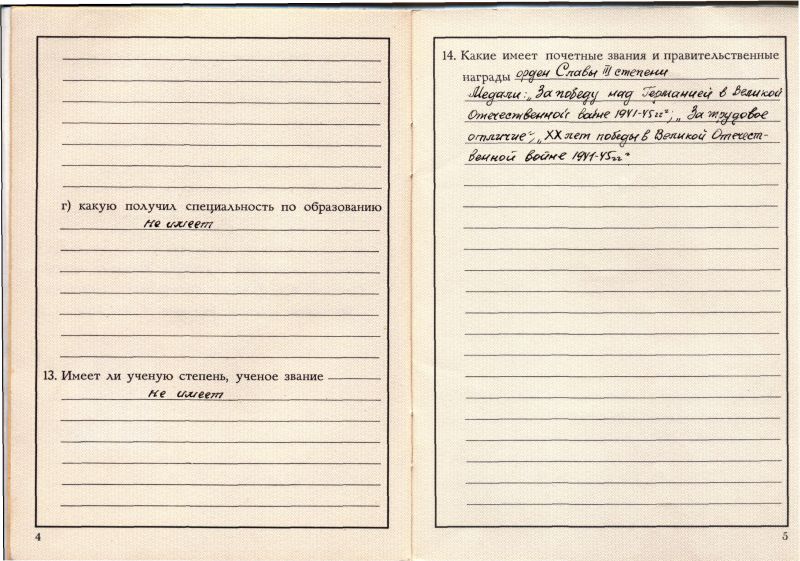 г) какую получил специальность по образованию
не имеет
13. Имеет ли ученую степень, ученое звание
не имеет
4
14. Какие имеет почетные звания и правительственные
награды орден Славы III степени
Медали: „За победу над Германией в Великой
Отечественной войне 1941-45гг“; „За трудовое
отличие“; „XX лет победы в Великой Отечест-
венной войне 1941-45гг“
5